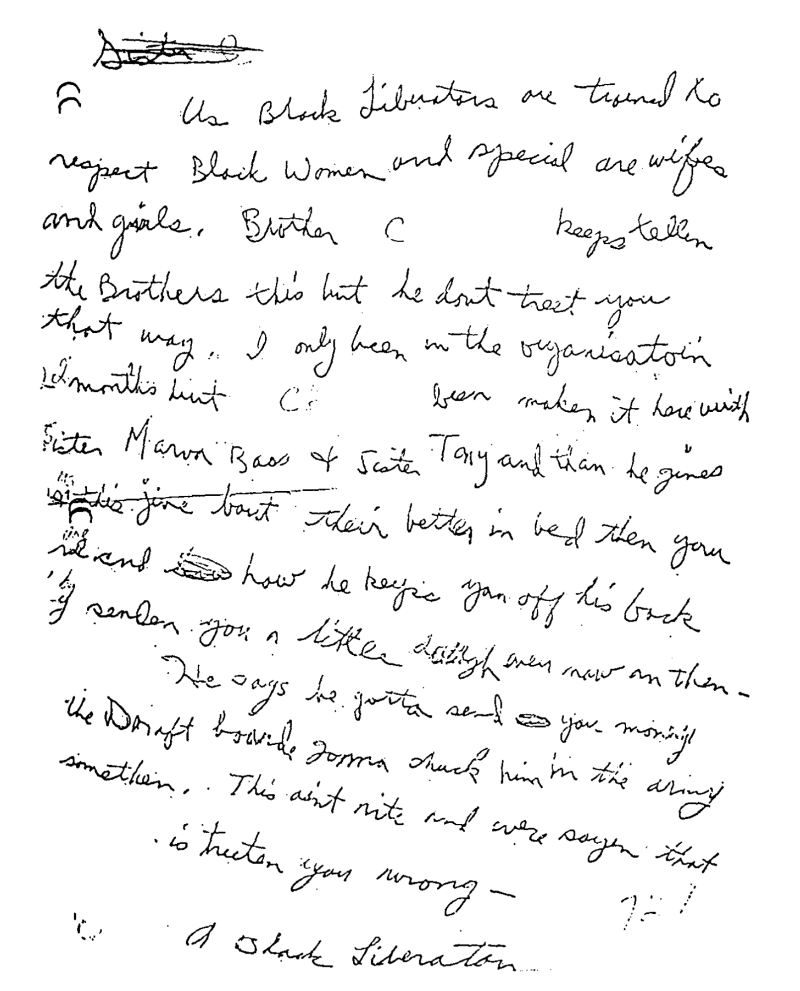 Sister C
Us Black Liberators are trained to
respect Black Women and special are wifes
and girls. Brother C keeps tellen
the Brothers this but he dont treet you
that way. I only been in the organisatoin
2 months but C been maken it here with
Sister Marva Bass & Sister Tony and than he gives
this jive bout their better in bed then you
and how he keeps you off his back
by senden you a little dough ever now an then—
He says he gotta send you money
the Draft boarde gonna chuck him in the army
somethen. This aint rite and were sayen that
is treeten you wrong—
A Black Liberator